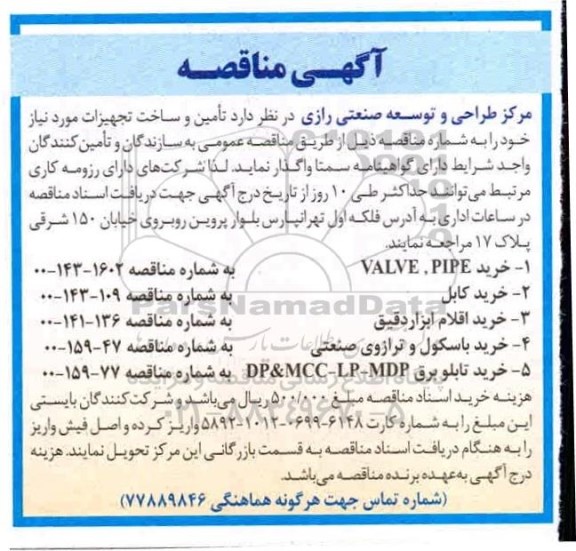 آگهـی مناقصـه
مرکز طراحی و توسعه صنعتی رازی در نظر دارد تأمین و ساخت تجهیزات مورد نیاز
خود را به شماره مناقصه ذیل از طریق مناقصه عمومی به سازندگان و تأمین کنندگان
واجد شرایط دارای گواهینامه سمتا واگذار نماید. لذا شرکت‌های دارای رزومه کاری
مرتبط می‌توانند حداکثر طی ۱۰ روز از تاریخ درج آگهی جهت دریافت اسناد مناقصه
در ساعات اداری به آدرس فلکه اول تهرانپارس بلوار پروین روبروی خیابان ۱۵۰ شرقی
پلاک ۱۷ مراجعه نمایند.
۱- خرید VALVE , PIPE به شماره مناقصه ۱۶۰۲-۱۴۳-۰۰
۲- خرید کابل به شماره مناقصه ۱۰۹-۱۴۳-۰۰
۳- خرید اقلام ابزار دقیق به شماره مناقصه ۱۳۶-۱۴۱-۰۰
۴- خرید باسکول و ترازوی صنعتی به شماره مناقصه ۴۷-۱۵۹-۰۰
۵- خرید تابلو برق DP&MCC-LP-MDP به شماره مناقصه ۷۷-۱۵۹-۰۰
هزینه خرید اسناد مناقصه مبلغ ۵۰۰/۰۰۰ ریال می‌باشد و شرکت کنندگان بایستی
این مبلغ را به شماره کارت ۶۱۴۸-۰۶۹۹-۱۰۱۲-۵۸۹۲ واریز کرده و اصل فیش واریز
را به هنگام دریافت اسناد مناقصه به قسمت بازرگانی این مرکز تحویل نمایند. هزینه
درج آگهی به‌عهده برنده مناقصه می‌باشد.
(شماره تماس جهت هرگونه هماهنگی ۷۷۸۸۹۸۴۶)
ParsNamadData
پایگاه اطلاع رسانی مناقصه و مزایده
۰۲۱-۸۸۳۴۹۶۷۰-۵